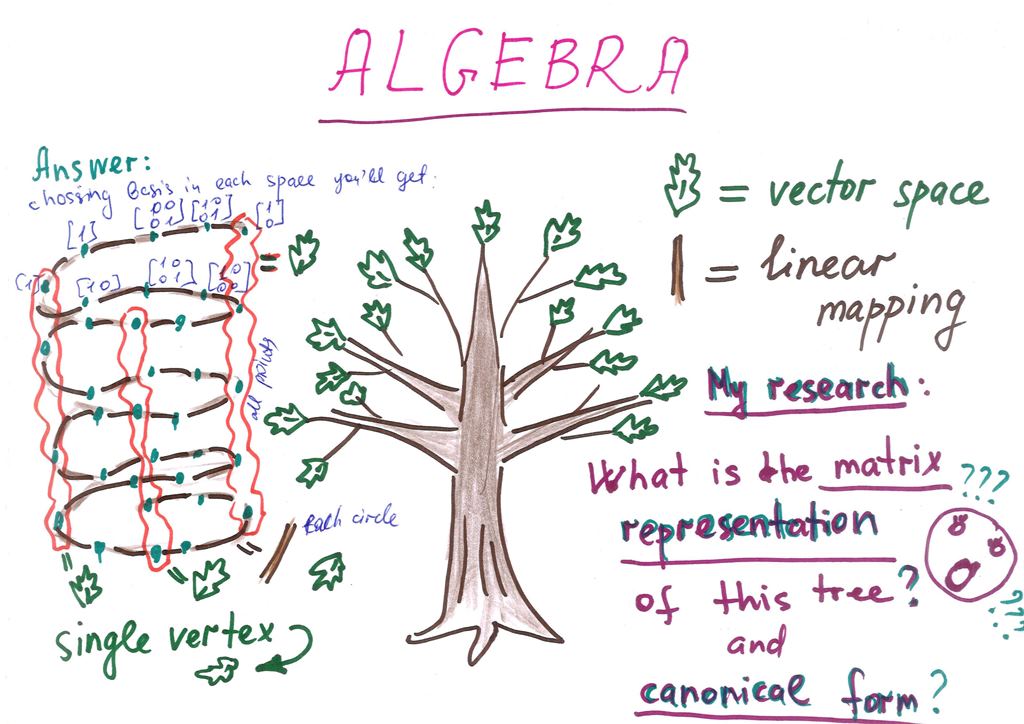 ALGEBRA
Answer:
chossing Basis in each space you'll get:
[1] [0 0
0 1] [1 0
0 1] [1
0]
[1] [1 0] [1 0
0 1] [1 0
0 0]
=
all points
= Each circle
= =
single vertex
= vector space
= linear
mapping
My research:
What is the matrix ???
representation
of this tree? ???
and
canonical form?